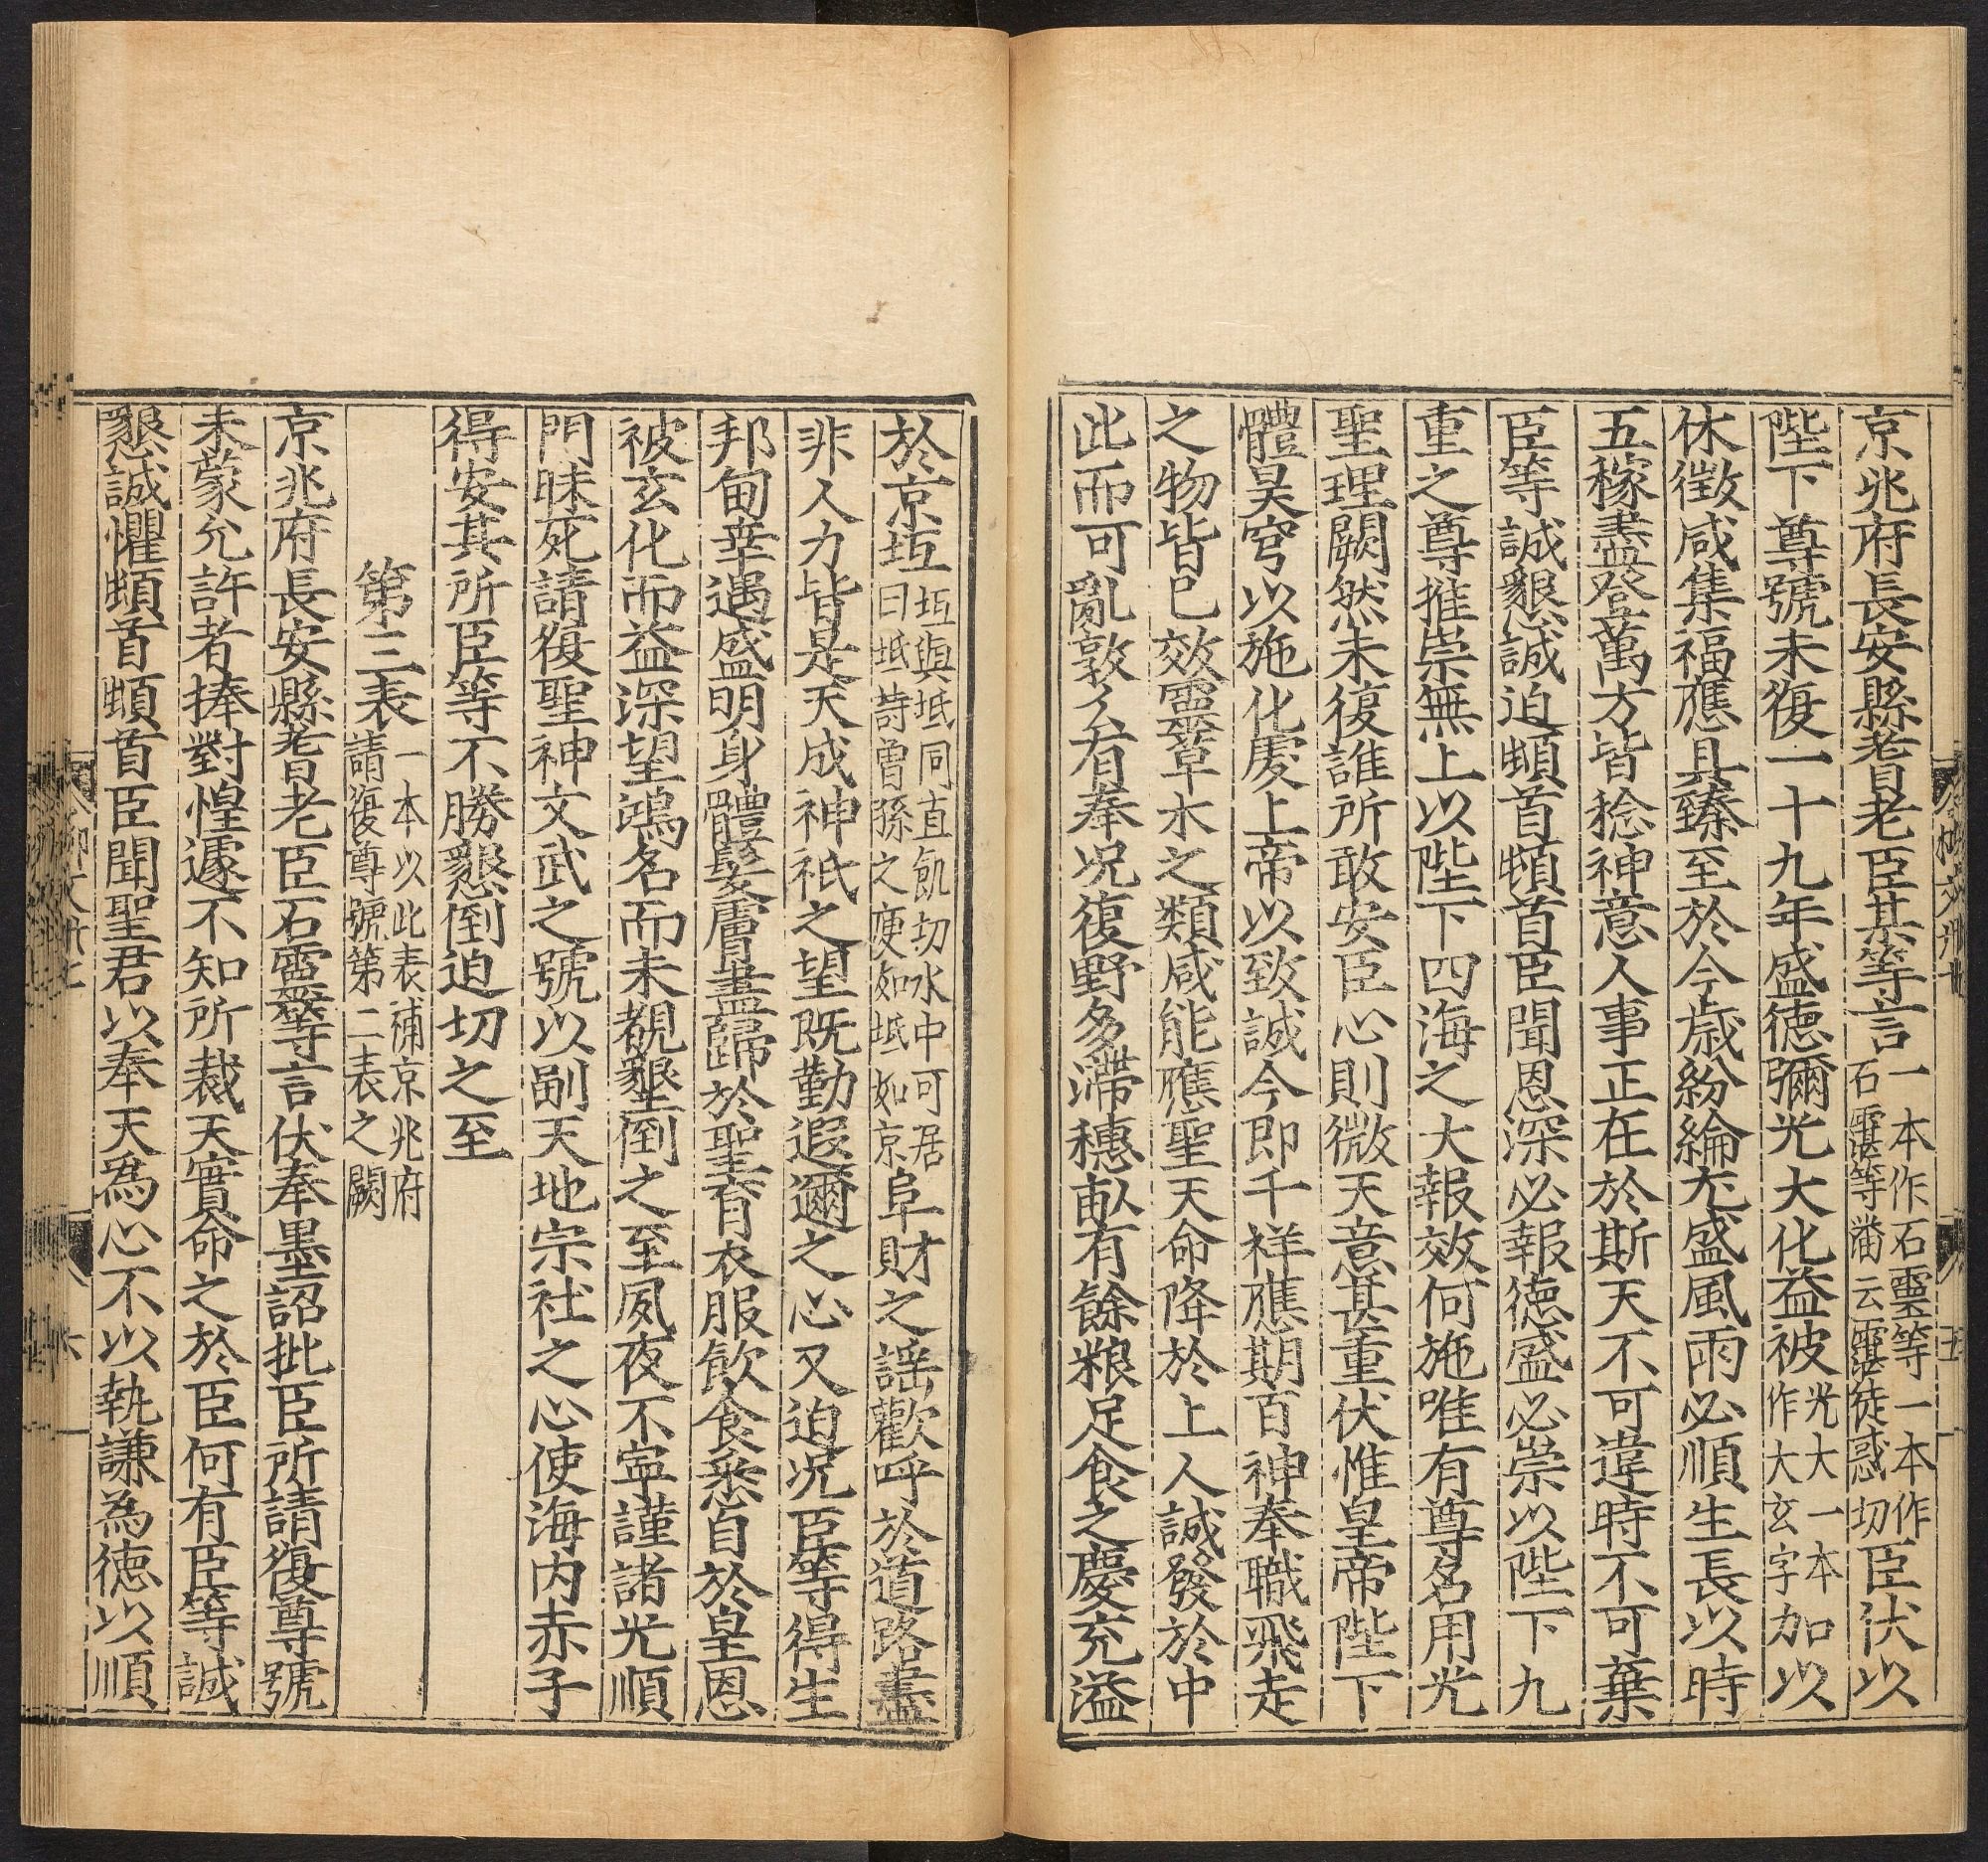 京兆府長安縣耆老臣某等言一本作石靈等一本作石𩆜等潘云𩆜徒感切臣伏以
陛下尊號未復一十九年盛德彌光大化益被光大一本作大玄字加以
休徵咸集福應具臻至於今歲紛綸尤盛風雨必順生長以時
五稼盡登萬方皆稔神意人事正在於斯天不可違時不可棄
臣等誠懇誠迫頓首頓首臣聞恩深必報德盛必崇以陛下九
重之尊推崇無上以陛下四海之大報效何施唯有尊名用光
聖理闕然未復誰所敢安臣心則微天意甚重伏惟皇帝陛下
體昊穹以施化虔上帝以致誠今即千祥應期百神奉職飛走
之物皆已效靈草木之類咸能應聖天命降於上人誠發於中
此而可亂敦〻有奉况復野多滯穗畝有餘粮足食之慶充溢
於京坻坻與坻同直飢切水中可居曰坻詩曾孫之庾如坻如京阜財之謡歡呼於道路盡
非人力皆是天成神祇之望既勤遐邇之心又迫况臣等得生
邦甸幸遇盛明身體髮膚盡歸於聖育衣服飲食悉自於皇恩
被玄化而益深望鴻名而未覩懇倒之至夙夜不寧謹詣光順
門昧死請復聖神文武之號以副天地宗社之心使海内赤子
得安其所臣等不勝懇倒迫切之至
第三表一本以此表補京兆府請復尊號第二表之闕
京兆府長安縣耆老臣石靈等言伏奉墨詔批臣所請復尊號
未蒙允許者捧對惶遽不知所裁天實命之於臣何有臣等誠
懇誠懼頓首頓首臣聞聖君以奉天為心不以執謙為德以順